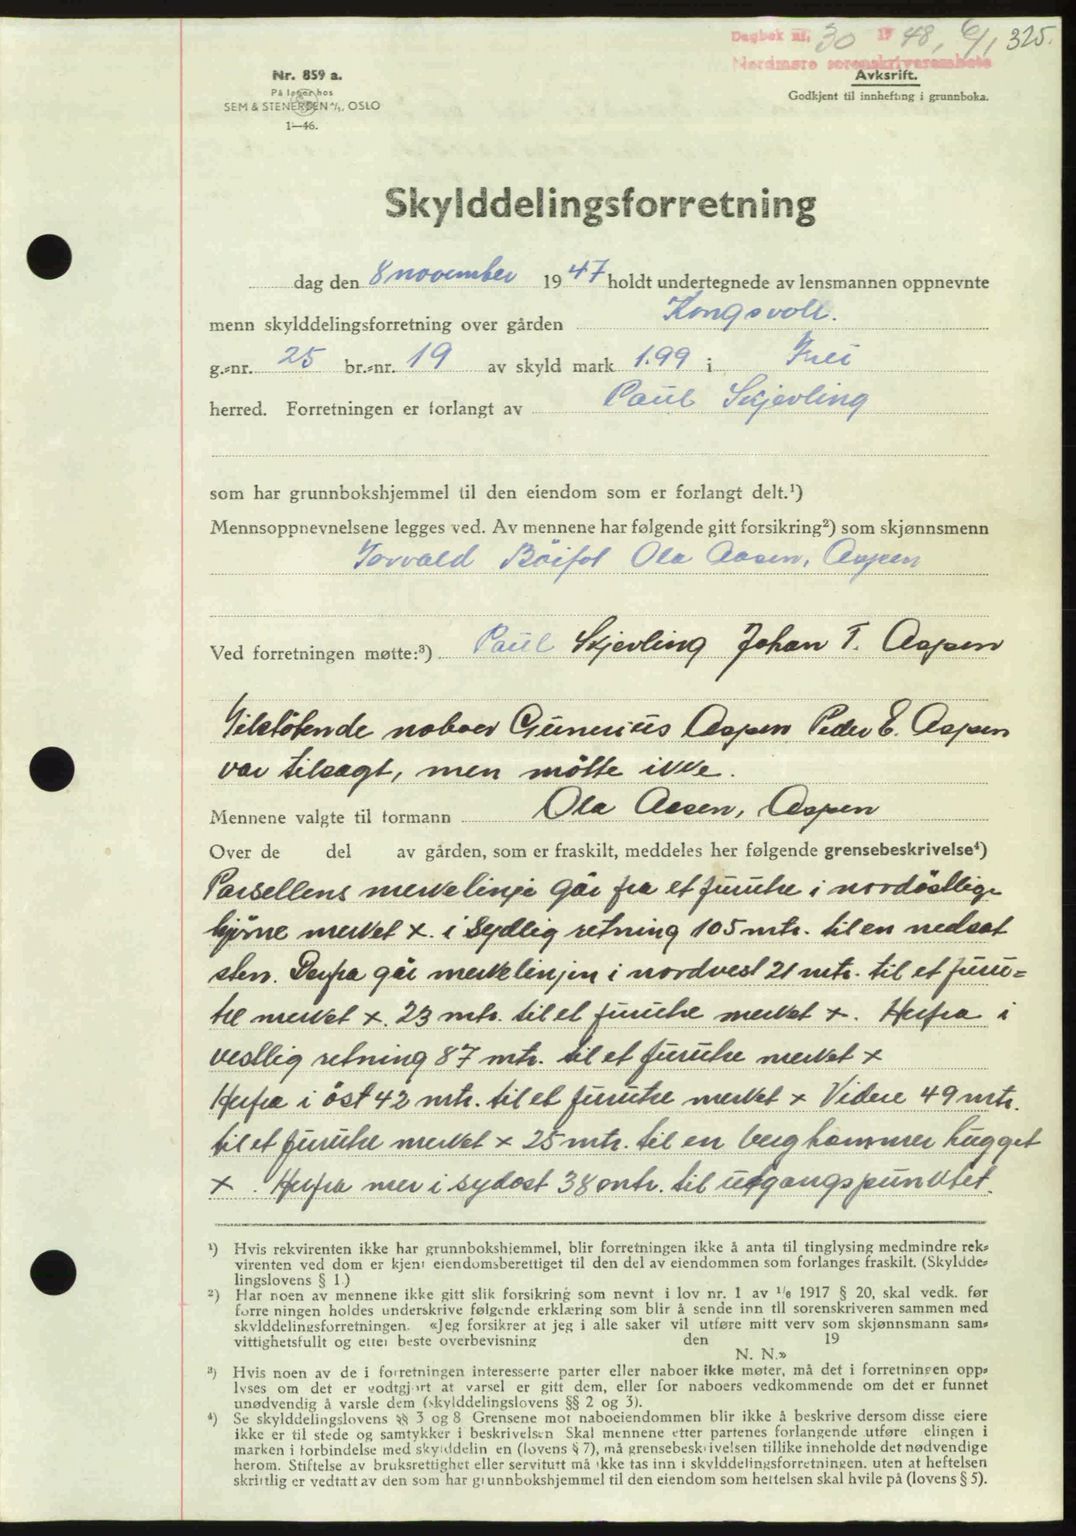 Dagbok nr. 30 1948, 6/1 325.
Nordmøre sorenskriverembete
Nr. 859 a.
På lager hos
SEM & STENERSEN A/S, OSLO
1—46.
Avksrift.
Godkjent til innhefting i grunnboka.
Skylddelingsforretning
dag den 8 november 1947 holdt undertegnede av lensmannen oppnevnte
menn skylddelingsforretning over gården Kongsvoll.
g.-nr. 25 br.-nr. 19 av skyld mark 1.99 i Frei
herred. Forretningen er forlangt av Paul Skjevling
som har grunnbokshjemmel til den eiendom som er forlangt delt.¹)
Mennsoppnevnelsene legges ved. Av mennene har følgende gitt forsikring²) som skjønnsmenn
Torvald Böifot Ola Aasen, Aspen
Ved forretningen møtte:³) Paul Skjevling Johan T. Aspen
Tilstötende naboer Gunerius Aspen Peder E. Aspen
var tilsagt, men mötte ikke.
Mennene valgte til formann Ola Aasen, Aspen
Over de del av gården, som er fraskilt, meddeles her følgende grensebeskrivelse⁴)
Parsellens merkelinje går fra et furutre i nordöstlige
hjörne merket x. i Sydlig retning 105 mtr. til en nedsat
sten. Derfra går merkelinjen i nordvest 21 mtr. til et furu=
tre merket x. 23 mtr. til et furutre merket x. Herfra i
vestlig retning 87 mtr. til et furutre merket x
Herfra i öst 42 mtr. til et furutre merket x Videre 49 mtr.
til et furutre merket x 25 mtr. til en berghammer hugget
x . Herfra mer i sydost 38 mtr. til utgangspunktet.
¹) Hvis rekvirenten ikke har grunnbokshjemmel, blir forretningen ikke å anta til tinglysing medmindre rek-
virenten ved dom er kjent eiendomsberettiget til den del av eiendommen som forlanges fraskilt. (Skyldde-
lingslovens § 1.)
²) Har noen av mennene ikke gitt slik forsikring som nevnt i lov nr. 1 av 1/6 1917 § 20, skal vedk. før
forretningen holdes underskrive følgende erklæring som blir å sende inn til sorenskriveren sammen med
skylddelingsforretningen. «Jeg forsikrer at jeg i alle saker vil utføre mitt verv som skjønnsmann sam-
vittighetsfullt og etter beste overbevisning den 19
N. N.»
³) Hvis noen av de i forretningen interesserte parter eller naboer ikke møter, må det i forretningen opp-
lyses om det er godtgjort at varsel er gitt dem, eller for naboers vedkommende om det er funnet
unødvendig å varsle dem (skylddelingslovens §§ 2 og 3).
⁴) Se skylddelingslovens §§ 3 og 8 Grensene mot naboeiendommen blir ikke å beskrive dersom disse eiere
ikke er til stede og samtykker i beskrivelsen Skal mennene etter partenes forlangende utføre elingen i
marken i forbindelse med skylddelin en (lovens § 7), må grensebeskrivelsen tillike inneholde det nødvendige
herom. Stiftelse av bruksrettighet eller servitutt må ikke tas inn i skylddelingsforretningen. uten at heftelsen
skriftlig er vedtatt av den som har grunnbokshjemmel til den eiendom som heftelsen skal hvile på (lovens § 5).